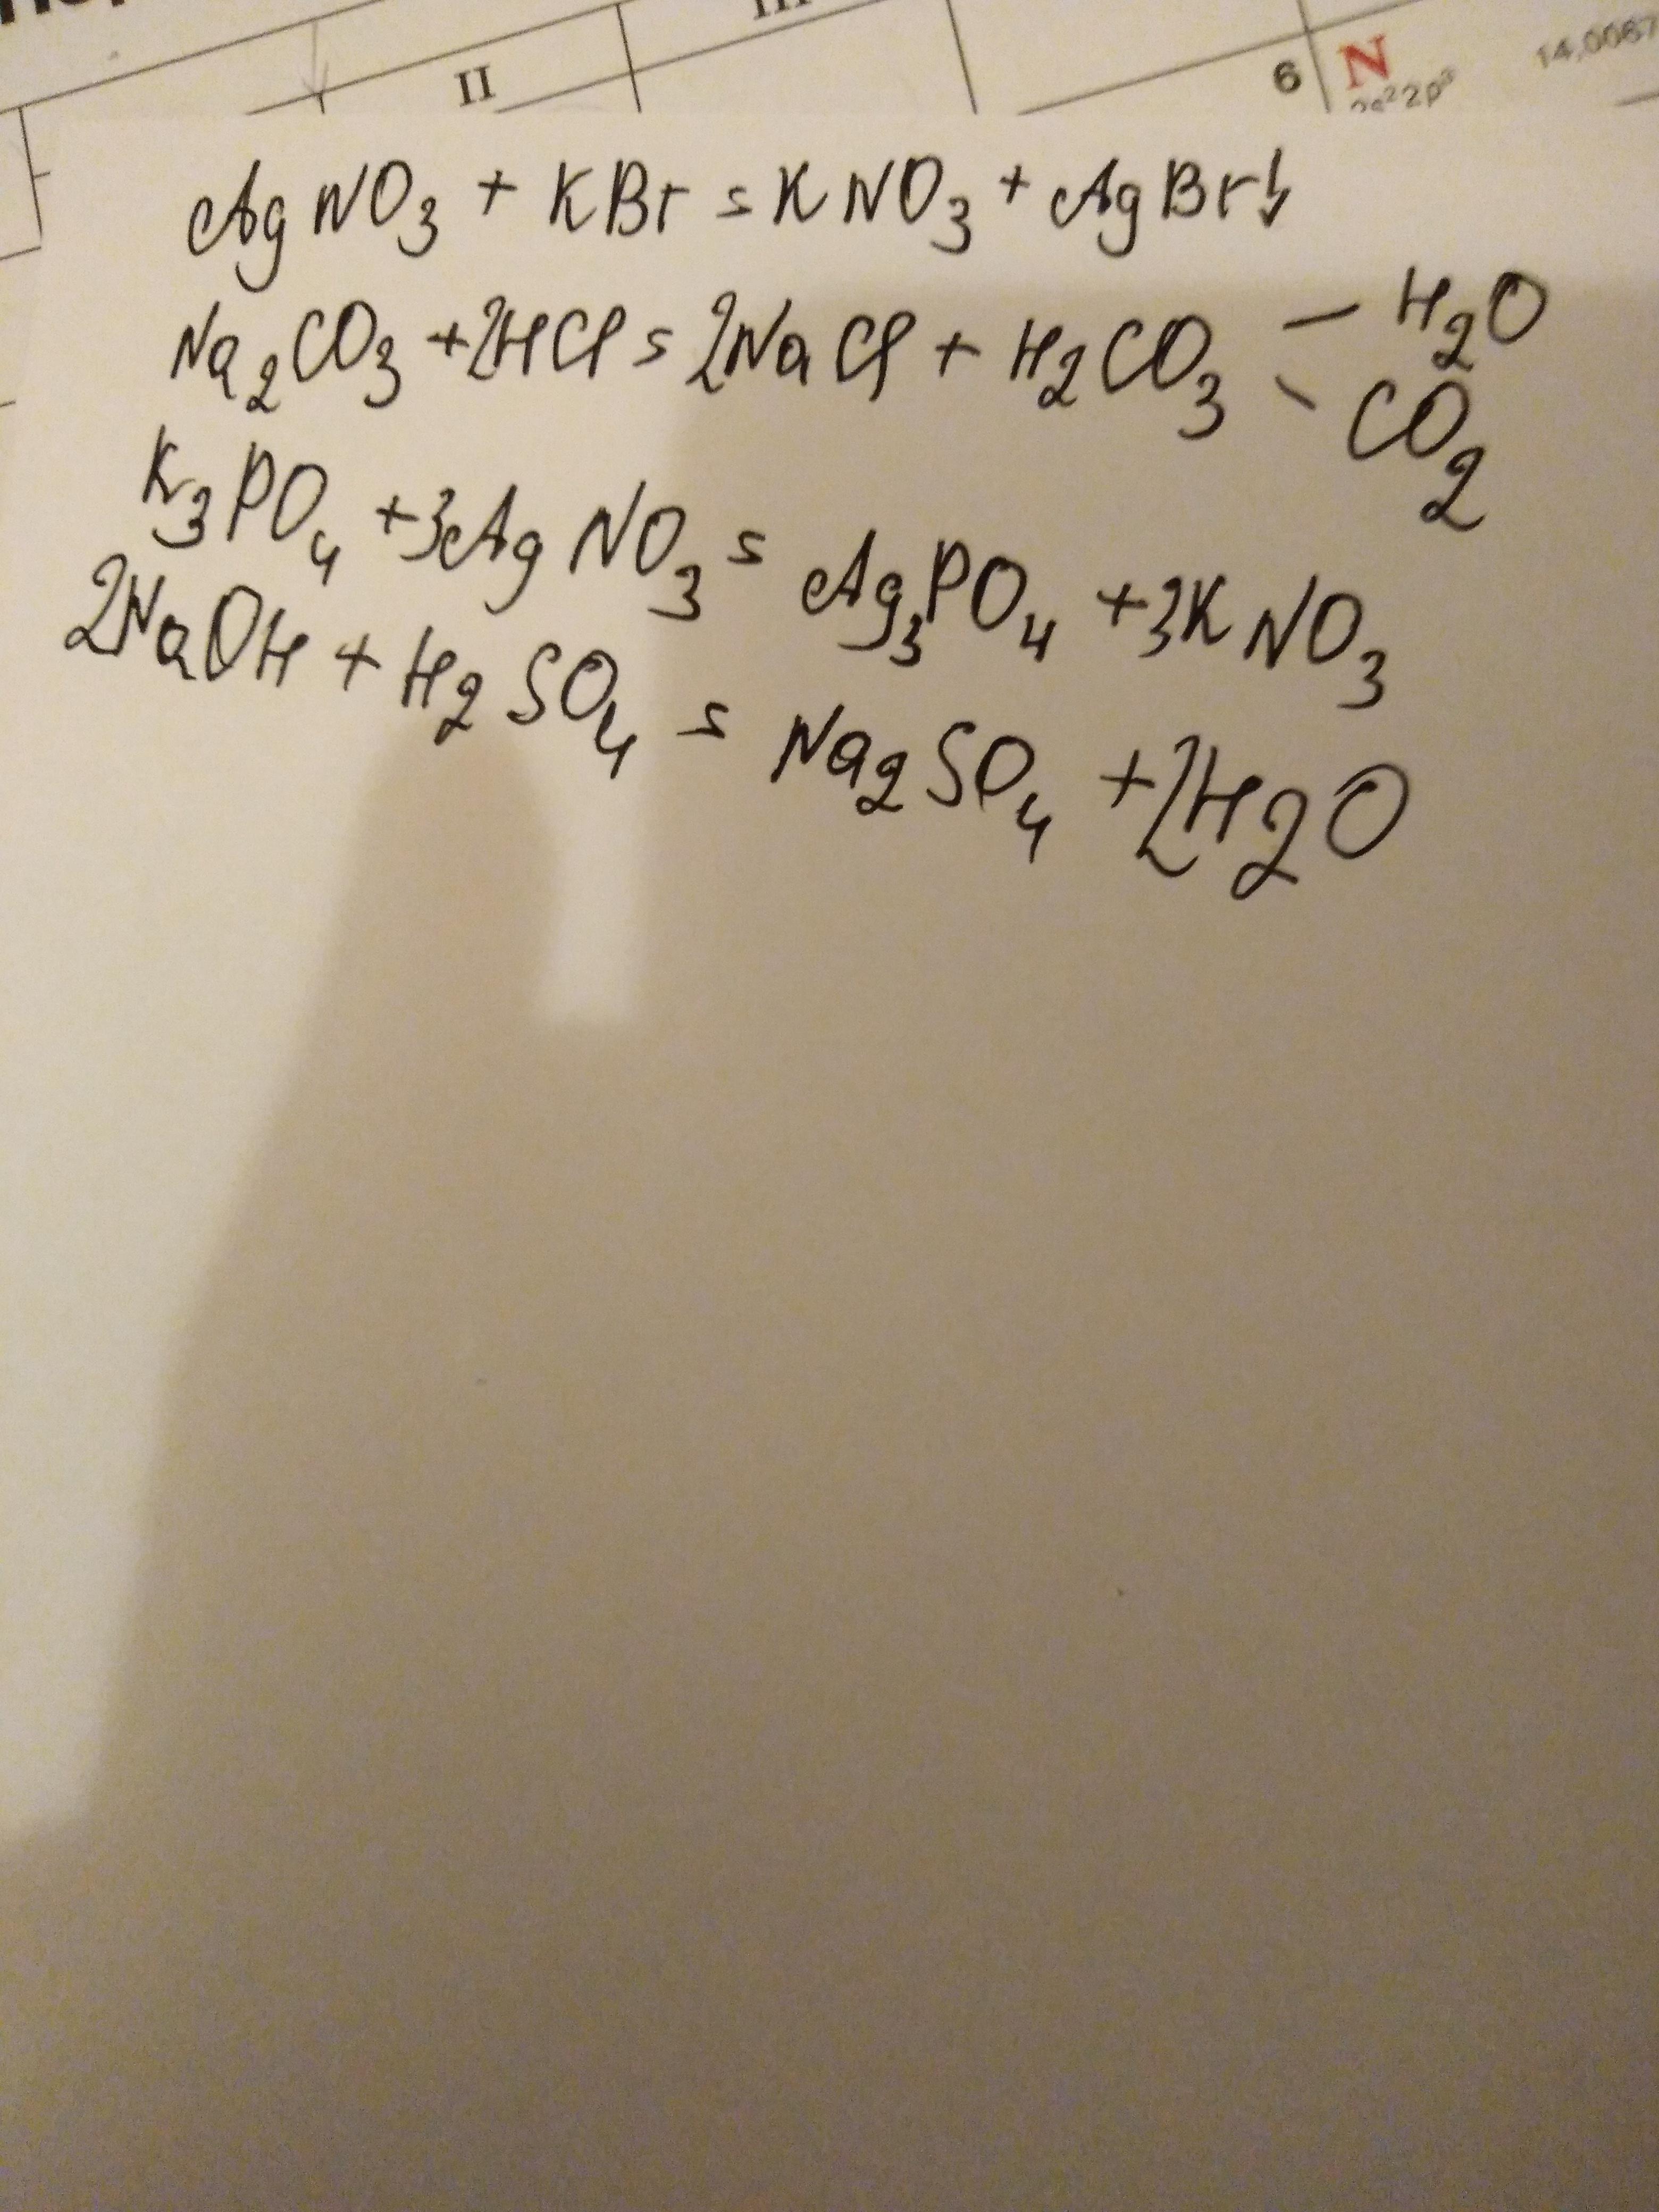 II
6 N 14,0067
2s²2p³
AgNO₃ + KBr = KNO₃ + AgBr↓
Na₂CO₃ + 2HCl = 2NaCl + H₂CO₃ — H₂O
CO₂
K₃PO₄ + 3AgNO₃ = Ag₃PO₄ + 3KNO₃
2NaOH + H₂SO₄ = Na₂SO₄ + 2H₂O